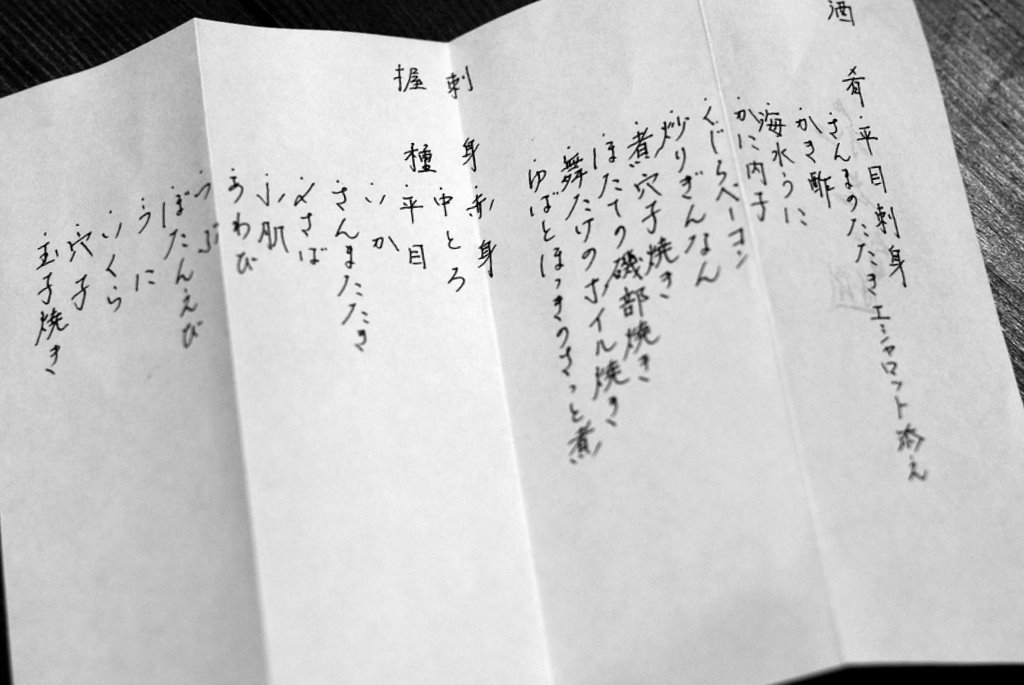 酒肴・平目刺身
・さんまのたたきエシャロット添え
・かき酢
・海水うに
・かに内子
・くじらベーコン
・炒りぎんなん
・煮穴子焼き
・ほたての磯部焼き
・舞たけのホイル焼き
・ゆばとほっきのさっと煮
刺身・赤身
・中とろ
握種・平目
・いか
・さんまたたき
・〆さば
・小肌
・あわび
・つぶ
・ぼたんえび
・うに
・いくら
・穴子
・玉子焼き